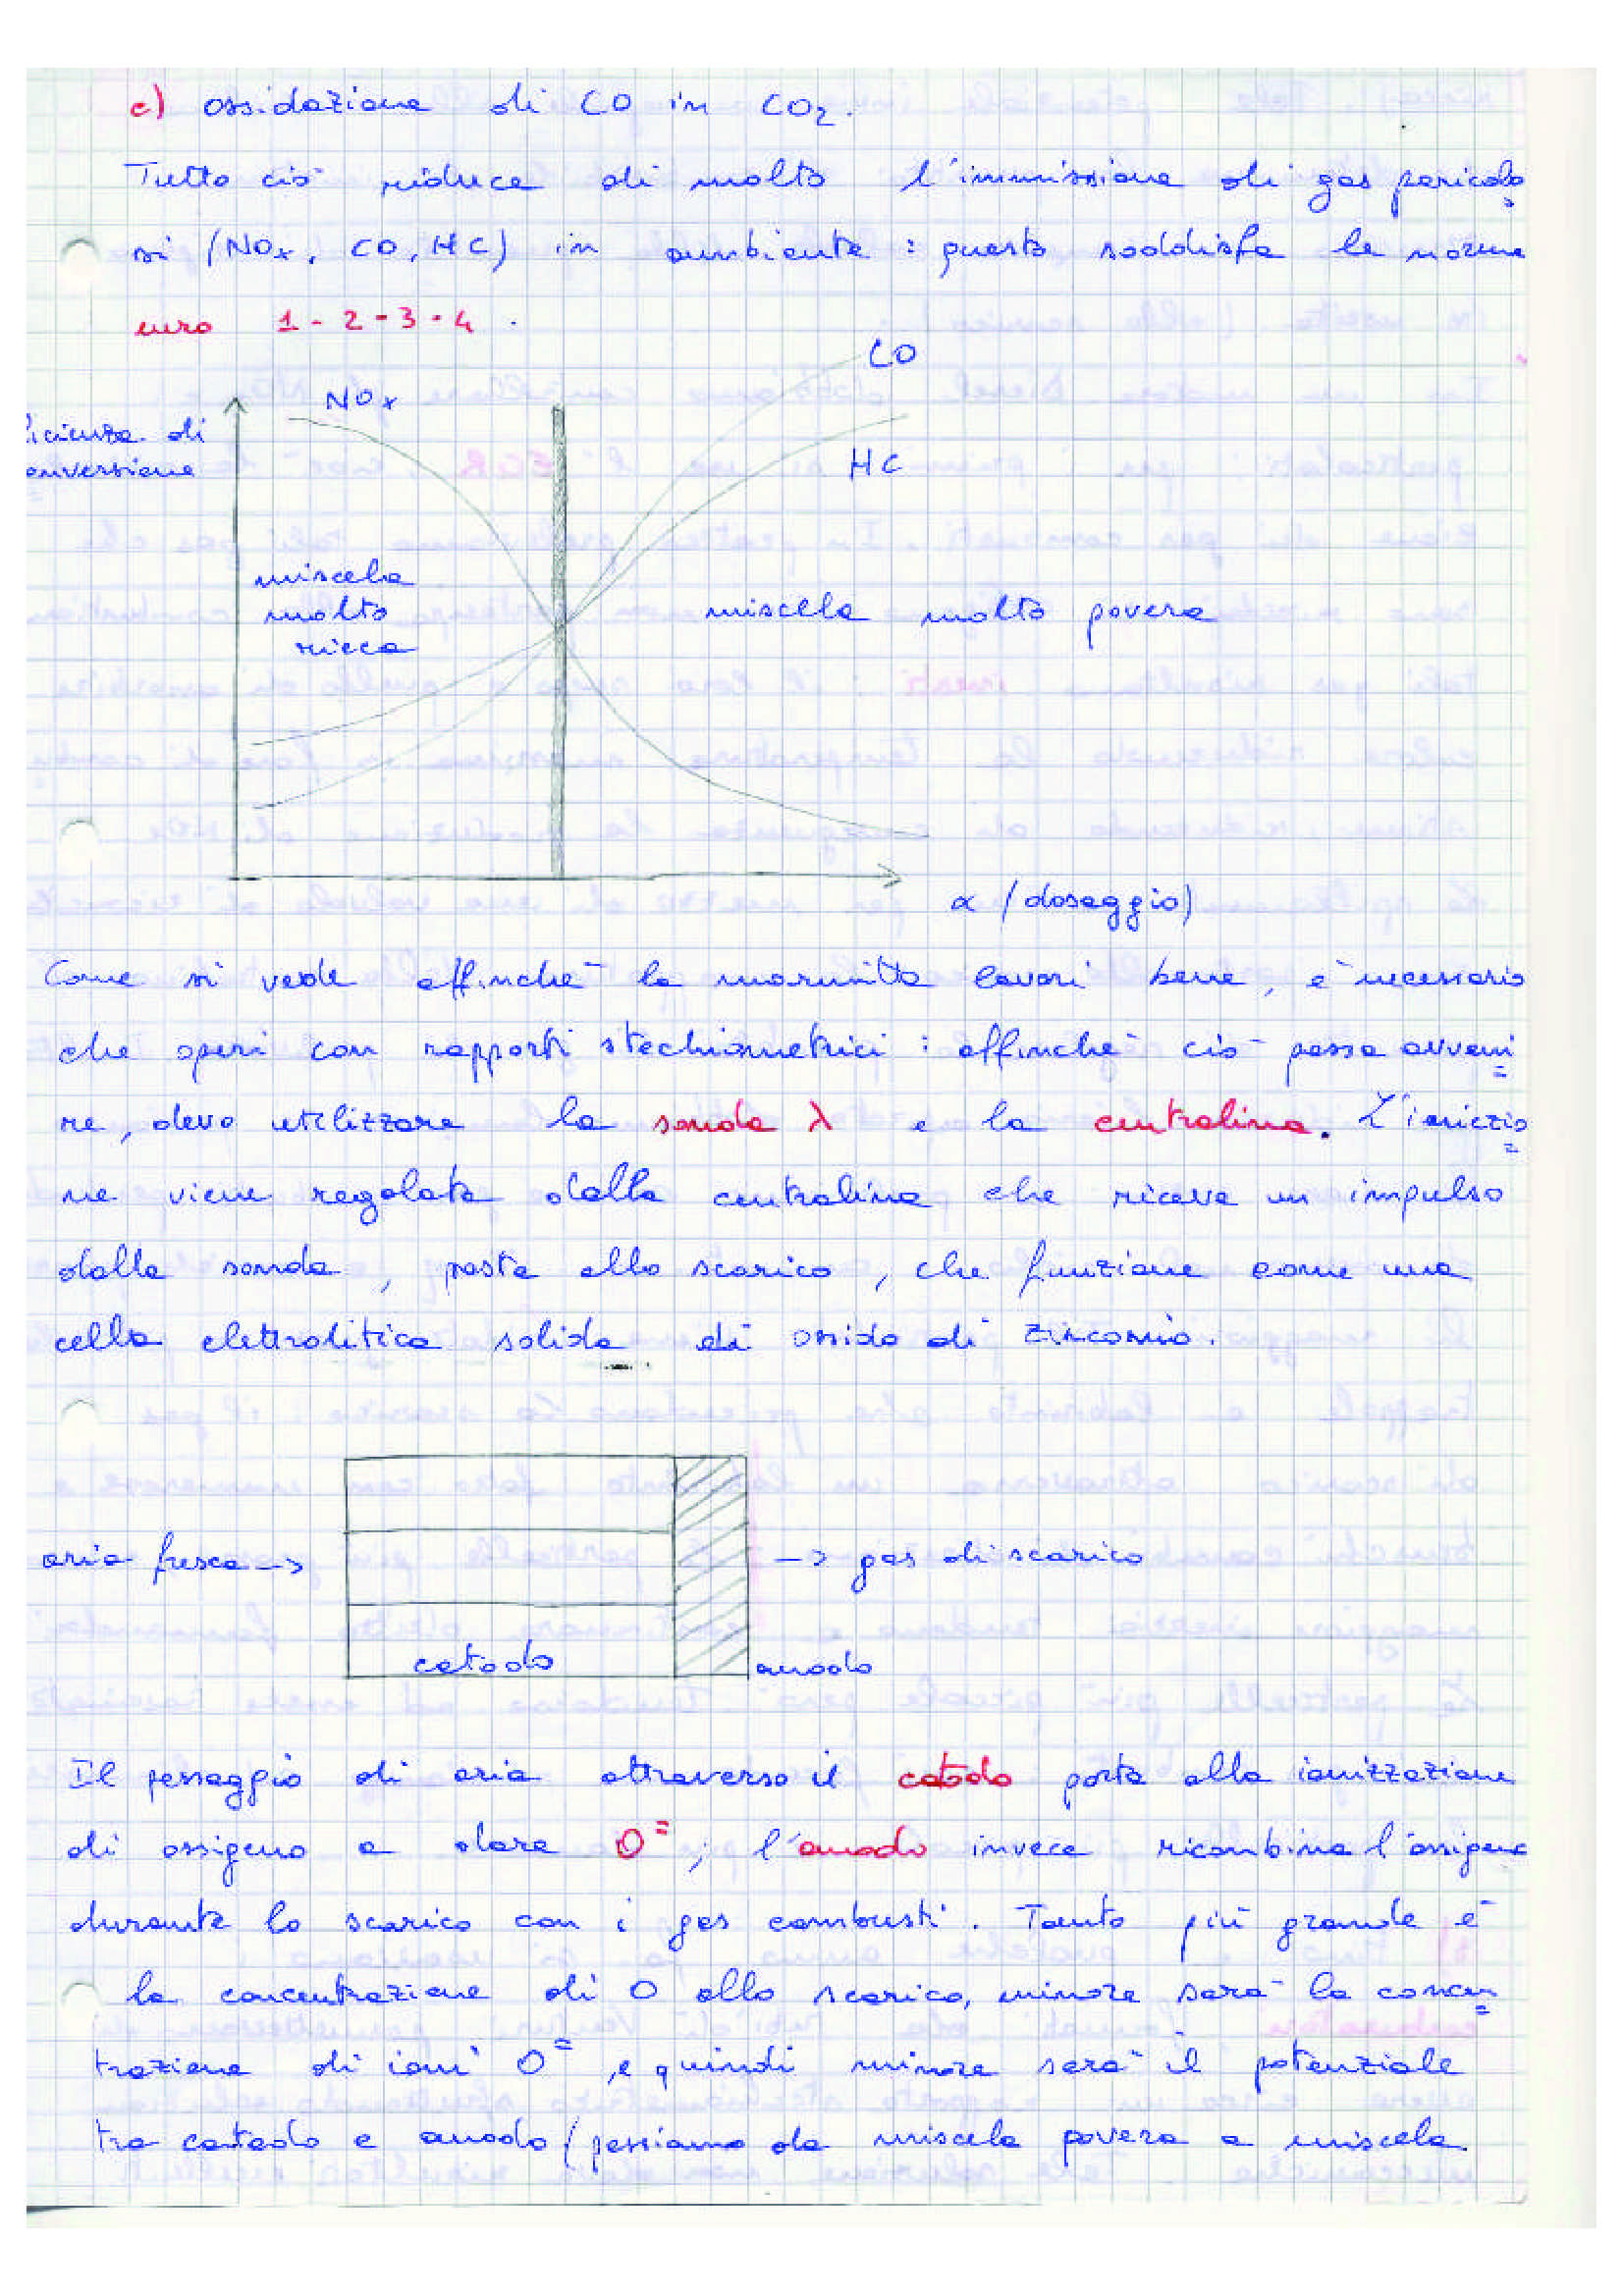 c) ossidazione di CO in CO₂.
Tutto ciò riduce di molto l'immissione di gas pericolo
si (NOx, CO, HC) in ambiente : questo soddisfa le norme
euro 1-2-3-4.
CO
NOx
icienza di
onversione
HC
miscela
molto
ricca
miscela molto povera
α (dosaggio)
Come si vede affinchè la marmitta lavori bene, è necessario
che operi con rapporti stechiometrici : affinchè ciò possa avveni
re, devo utilizzare la sonda λ e la centralina. L'iniezio
ne viene regolata dalla centralina che riceve un impulso
dalla sonda, posta allo scarico, che funziona come una
cella elettrolitica solida di ossido di zirconio.
aria fresca -> -> gas di scarico
catodo anodo
Il passaggio di aria attraverso il catodo porta alla ionizzazione
di ossigeno a dare O⁼; l'anodo invece ricombina l'ossigeno
durante lo scarico con i gas combusti. Tanto più grande è
la concentrazione di O allo scarico, minore sarà la concen
trazione di ioni O⁼, e quindi minore sarà il potenziale
tra catodo e anodo (passiamo da miscela povera a miscela